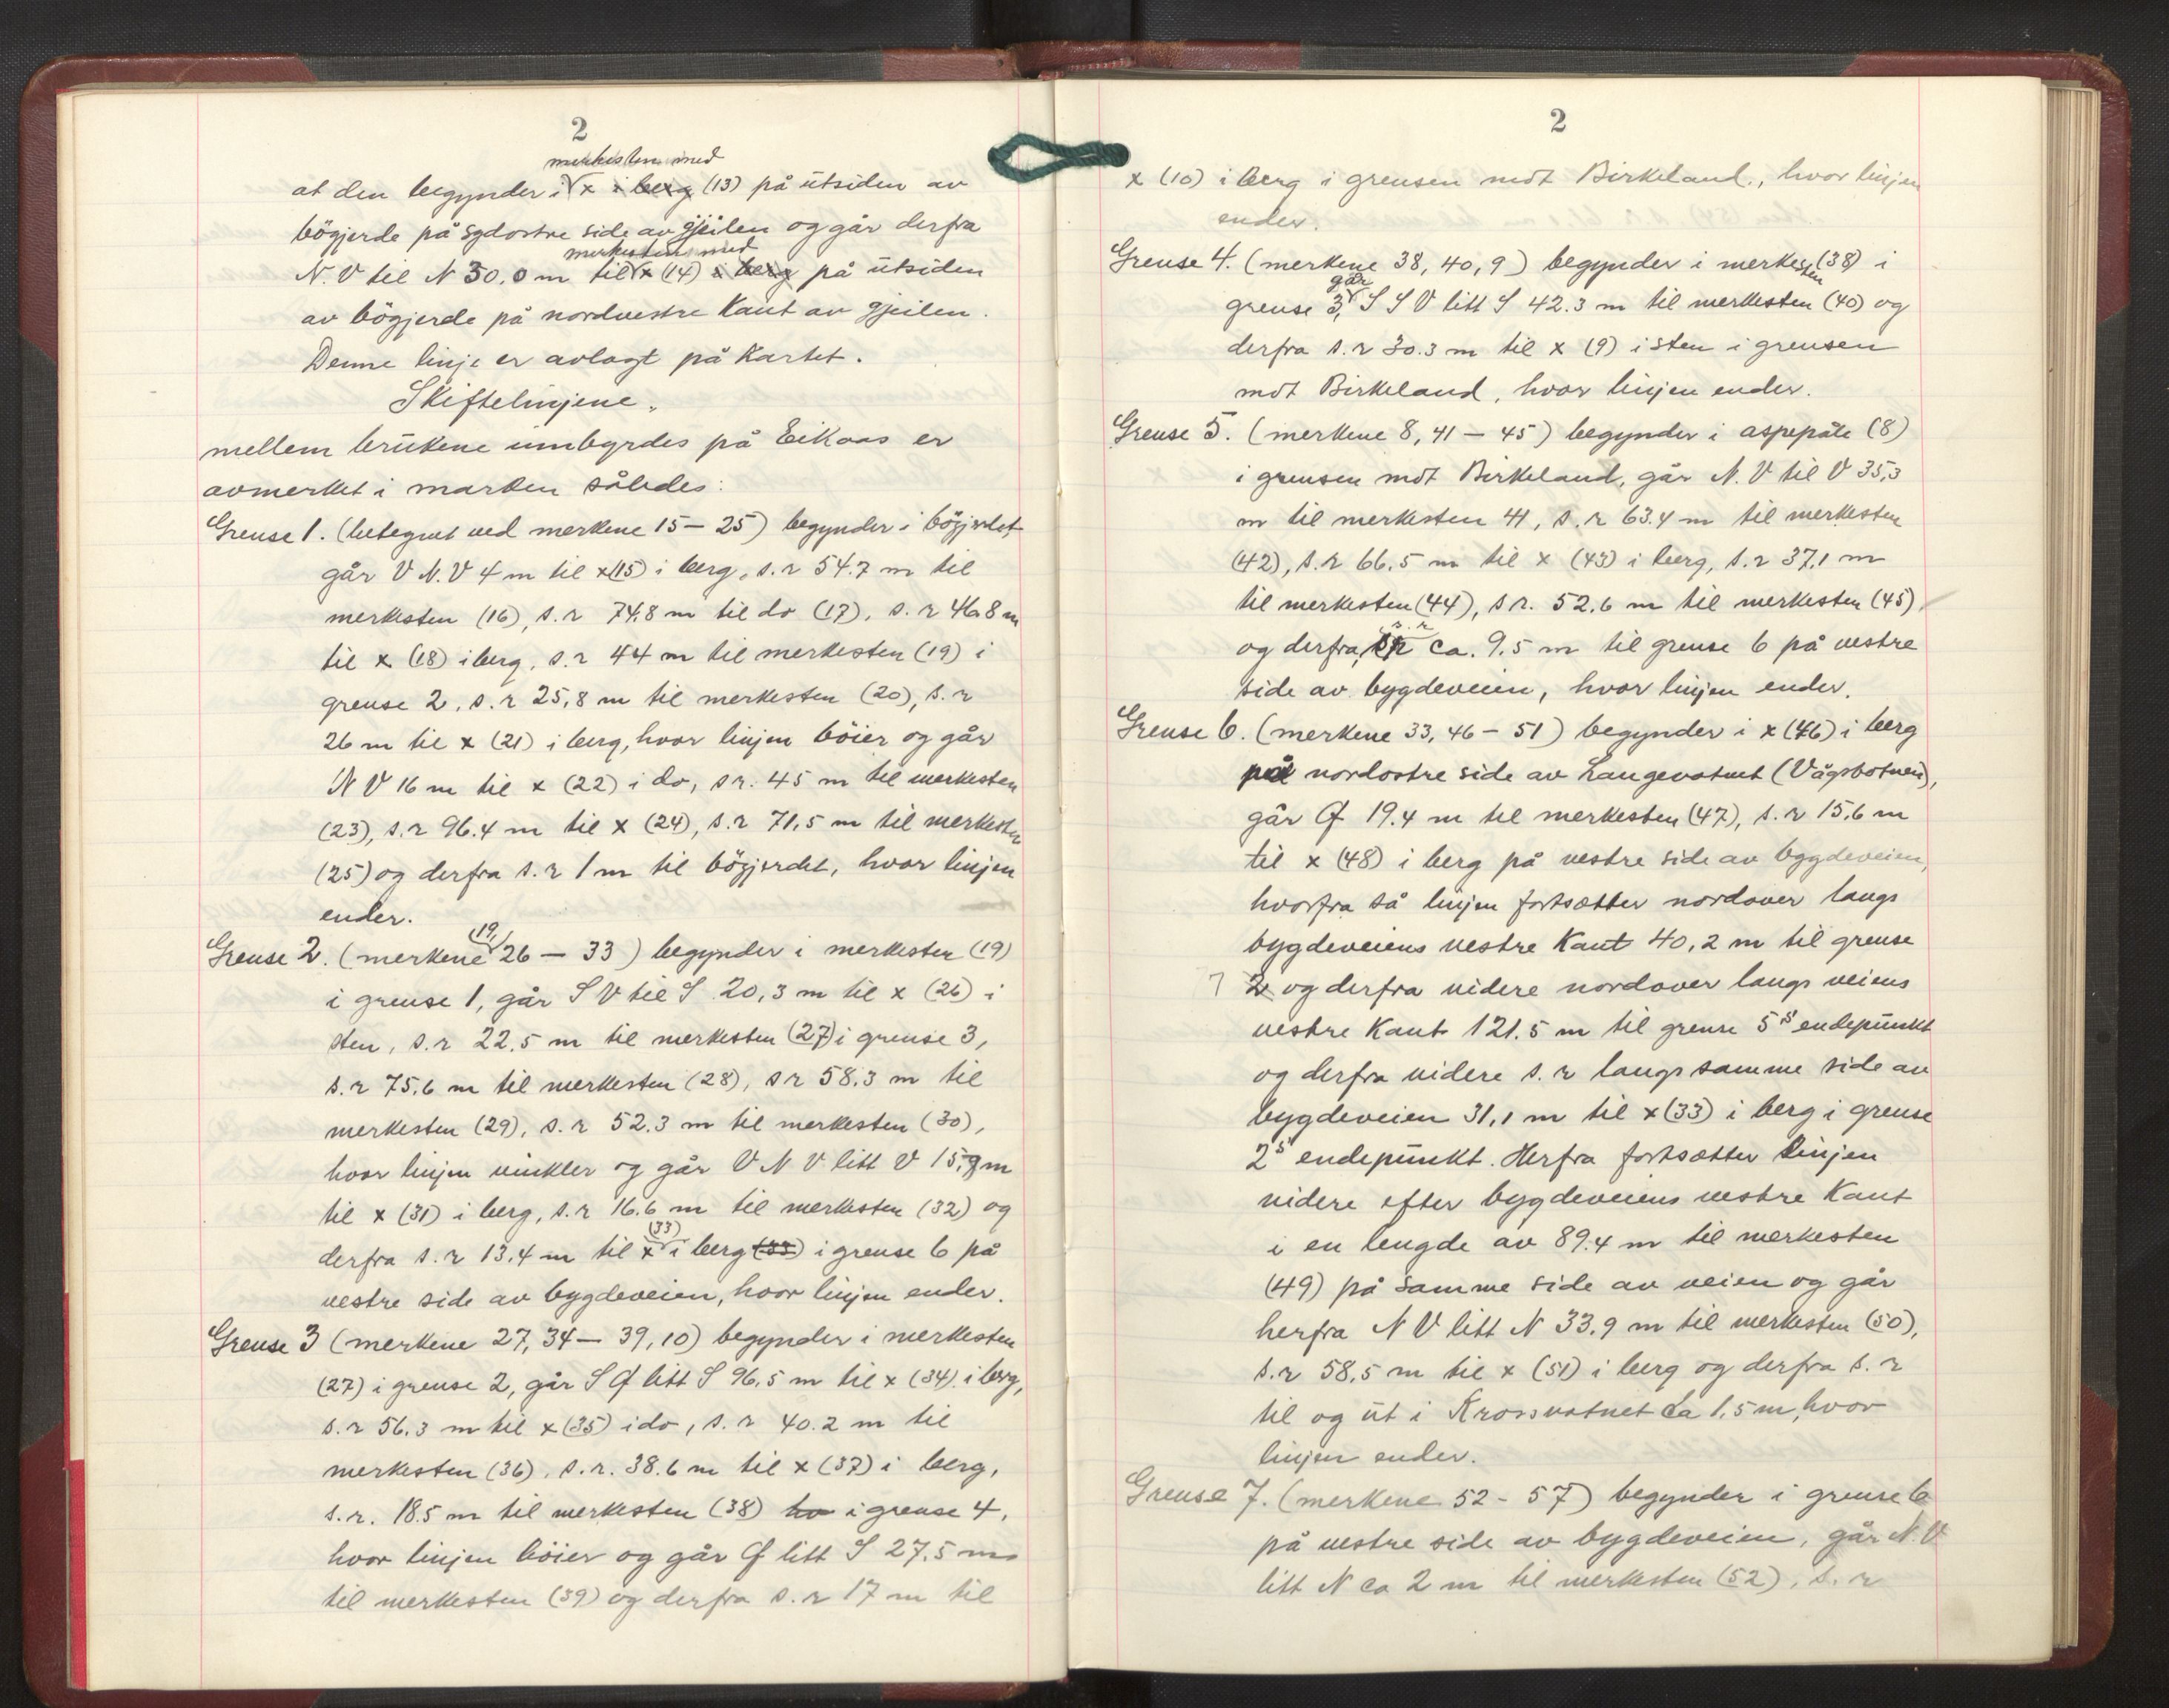 2
merkesten med
at den begynder i x i berg (13) på utsiden av
bögjerde på sydostre side av gjeilen og går derfra
merkesten med
N.V til N 30.0 m til x (14) i berg på utsiden
av bögjerde på nordvestre Kant av gjeilen.
Denne linje er avlagt på Kartet.
Skiftelinjene.
mellem brukene innbyrdes på Eikaas er
avmerket i marken således:
Grense 1. (betegnet ved merkene 15 — 25) begynder i bögjerdet,
går V N.V 4 m til x (15) i berg, s.r 54.7 m til
merkesten (16), s.r 74.8 m til do (17), s.r 46.8 m
til x (18) i berg, s.r 44 m til merkesten (19) i
grense 2, s.r 25,8 m til merkesten (20), s.r
26 m til x (21) i berg, hvor linjen böier og går
N V 16 m til x (22) i do, s r. 45 m til merkesten
(23), s.r 96.4 m til x (24), s.r 71,5 m til merkesten
(25) og derfra s.r 1 m til bögjerdet, hvor linjen
ender.
(19,)
Grense 2. (merkene 26 — 33) begynder i merkesten (19)
i grense 1, går S V til S 20,3 m til x (26) i
sten, s.r 22.5 m til merkesten (27) i grense 3,
s.r 75.6 m til merkesten (28), s r 58.3 m til
merkesten (29), s.r 52.3 m til merkesten (30),
hvor linjen vinkler og går V N V litt V 15,9 m
til x (31) i berg, s.r 16.6 m til merkesten (32) og
(33)
derfra s.r 13.4 m til x i berg (33) i grense 6 på
vestre side av bygdeveien, hvor linjen ender.
Grense 3 (merkene 27, 34 — 39, 10) begynder i merkesten
(27) i grense 2, går S Ø litt S 96,5 m til x (34) i berg,
s.r 56.3 m til x (35) i do, s.r 40.2 m til
merkesten (36), s.r. 38.6 m til x (37) i berg,
s.r. 18.5 m til merkesten (38) hv i grense 4,
hvor linjen böier og går Ø litt S 27.5 m
til merkesten (39) og derfra s.r 17 m til
2
x (10) i berg i grensen mot Birkeland., hvor linjen
ender.
Grense 4. (merkene 38, 40, 9) begynder i merkesten (38) i
går
grense 3, S S V litt S 42.3 m til merkesten (40) og
derfra s.r 30.3 m til x (9) i sten i grensen
mot Birkeland, hvor linjen ender.
Grense 5. (merkene 8, 41 — 45) begynder i aspepåle (8)
i grensen mot Birkeland, går N.V til V 35,3
m til merkesten 41, s.r 63.4 m til merkesten
(42), s.r 66.5 m til x (43) i berg, s.r 37,1 m
til merkesten (44), s r. 52.6 m til merkesten (45)
s.r
og derfra, ca. 9.5 m til grense 6 på vestre
side av bygdeveien, hvor linjen ender.
Grense 6. (merkene 33, 46 — 51) begynder i x (46) i berg
på nordostre side av Langevatnet (Vågsbotnen),
går Ø 19.4 m til merkesten (47), s.r 15.6 m
til x (48) i berg på vestre side av bygdeveien,
hvorfra så linjen fortsætter nordover langs
bygdeveiens vestre Kant 40,2 m til grense
7 2 og derfra videre nordover langs veiens
vestre Kant 121.5 m til grense 5s endepunkt
og derfra videre s.r langs samme side av
bygdeveien 31,1 m til x (33) i berg i grense
2s endepunkt. Herfra fortsætter linjen
videre efter bygdeveiens vestre Kant
i en lengde av 89.4 m til merkesten
(49) på samme side av veien og går
herfra N V litt N 33.9 m til merkesten (50),
s.r 58,5 m til x (51) i berg og derfra s.r
til og ut i Krossvatnet ca 1,5 m, hvor
linjen ender.
Grense 7. (merkene 52 - 57) begynder i grense 6
på vestre side av bygdeveien, går N.V
litt N ca 2 m til merkesten (52), s.r